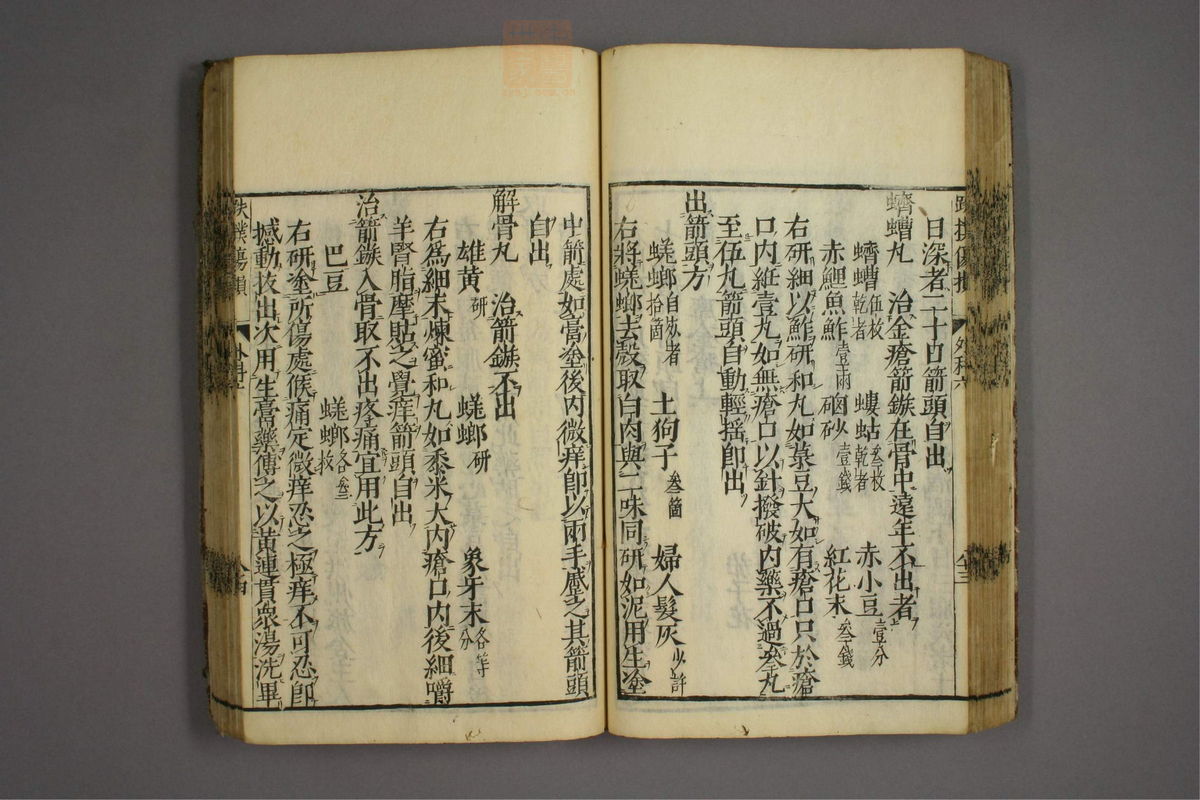 日深者二十日箭頭自出
蠐螬丸　治金瘡箭鏃在骨中遠年不出者
蠐螬伍枚乾者　螻蛄叄枚乾者　赤小豆壹分
赤鯉魚鮓壹兩　硇砂壹錢　紅花末叄錢
右研細以鮓研和丸如菉豆大如有瘡口只於瘡
口內紝壹丸如無瘡口以針撥破內藥不過叄丸
至伍丸箭頭自動輕搖卽出
出箭頭方
蜣螂自死者拾箇　土狗子叄箇　婦人髮灰少許
右將蜣螂去殼取白肉與二味同研如泥用生塗
中箭處如膏塗後內微痒卽以兩手蹙之其箭頭
自出
解骨丸　治箭鏃不出
雄黃研　蜣螂研　象牙末各等分
右爲細末煉蜜和丸如黍米大內瘡口內後細嚼
羊腎脂摩貼之覺痒箭頭自出
治箭鏃入骨取不出疼痛宜用此方
巴豆　蜣螂各叄枚
右研塗所傷處候痛定微痒忍之極痒不可忍卽
撼動拔出次用生膏藥傅之以黃連貫衆湯洗畢